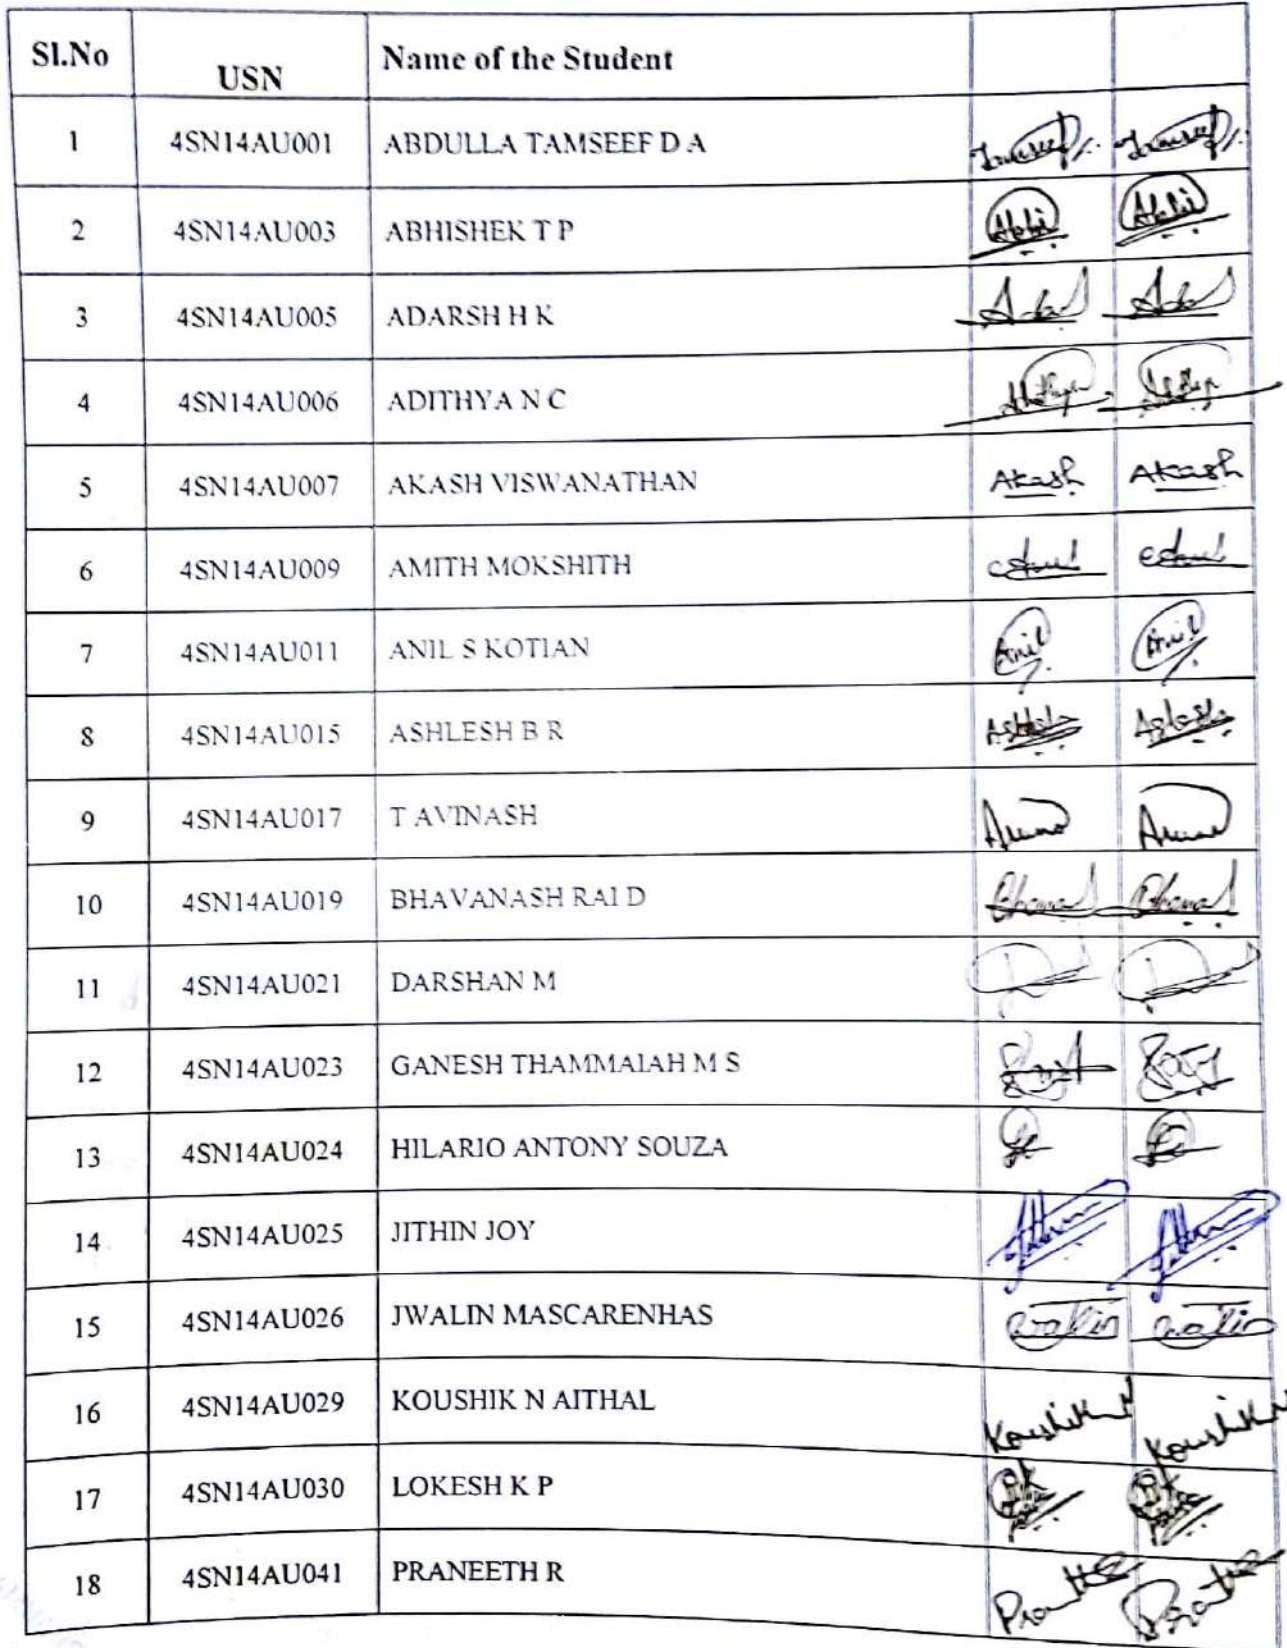 Sl.No USN Name of the Student
1 4SN14AU001 ABDULLA TAMSEEF D A Tamseef Tamseef
2 4SN14AU003 ABHISHEK T P Abhi Abhi
3 4SN14AU005 ADARSH H K
4 4SN14AU006 ADITHYA N C
5 4SN14AU007 AKASH VISWANATHAN Akash Akash
6 4SN14AU009 AMITH MOKSHITH
7 4SN14AU011 ANIL S KOTIAN Anil Anil
8 4SN14AU015 ASHLESH B R
9 4SN14AU017 T AVINASH
10 4SN14AU019 BHAVANASH RAI D
11 4SN14AU021 DARSHAN M
12 4SN14AU023 GANESH THAMMAIAH M S
13 4SN14AU024 HILARIO ANTONY SOUZA
14 4SN14AU025 JITHIN JOY
15 4SN14AU026 JWALIN MASCARENHAS
16 4SN14AU029 KOUSHIK N AITHAL
17 4SN14AU030 LOKESH K P
18 4SN14AU041 PRANEETH R